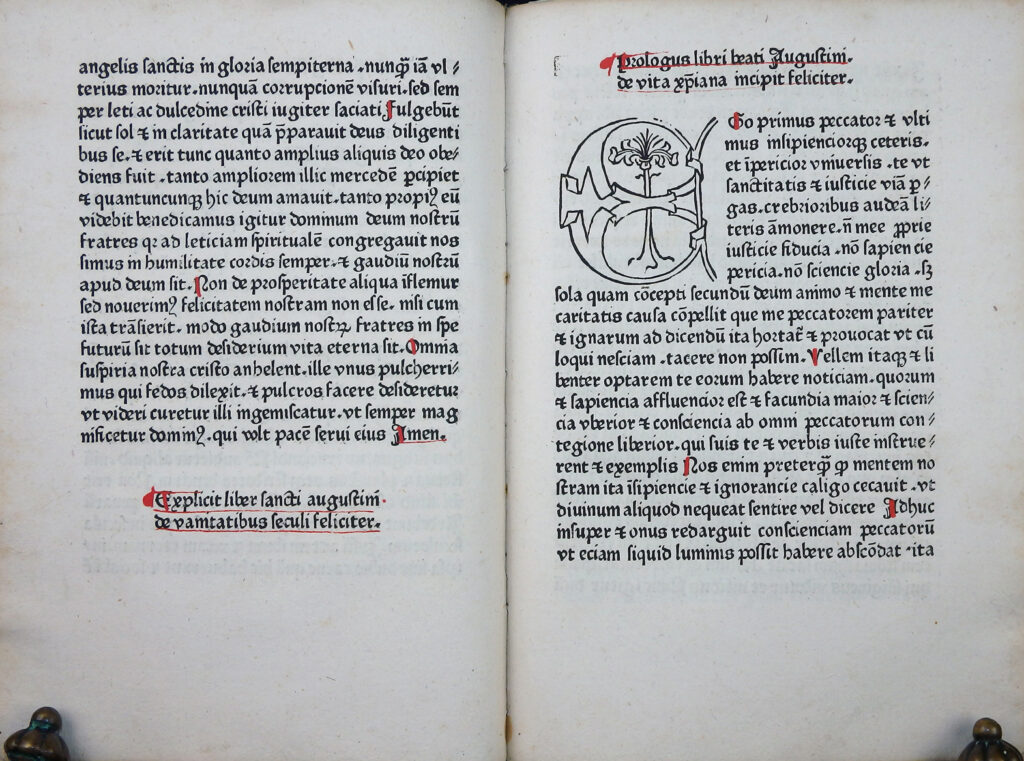 angelis sanctis in gloria sempiterna . nunqȝ iā vl⸗
terius moritur . nunquā corrupcionē visuri . sed sem
per leti ac dulcedine cristi iugiter saciati Fulgebūt
sicut sol ⁊ in claritate quā p̄parauit deus diligenti
bus se . ⁊ erit tunc quanto amplius aliquis deo obe⸗
diens fuit . tanto ampliorem illic mercedē ꝑcipiet
⁊ quantuncunqȝ hic deum amauit . tanto propiꝰ eū
videbit benedicamus igitur dominum deum nostrū
fratres qr ad leticiam spiritualē congregauit nos
simus in humilitate cordis semper . ⁊ gaudiū nostrū
apud deum sit . Non de prosperitate aliqua īflemur
sed nouerimꝰ felicitatem nostram non esse . nisi cum
ista trāsierit . modo gaudium nostꝝ fratres in spe
futurū sit totum desiderium vita eterna sit . Omnia
suspiria nostra cristo anhelent . ille vnus pulcherri⸗
mus qui fedos dilexit . ⁊ pulcros facere desideretur
vt videri curetur illi ingemiscatur . vt semper mag
nificetur dominꝰ . qui volt pacē serui eius Amen .
Explicit liber sancti augustini .
de vanitatibus seculi feliciter .
Prologus libri beati Augustini
de vita xp̄iana incipit feliciter .
EGo primus peccator ⁊ vlti
mus insipienciorqȝ ceteris .
et īpericior vniuersis . te vt
sanctitatis ⁊ iusticie viā ꝑ⸗
gas . crebrioribus audeā li⸗
teris āmonere . n̄ mee ꝓprie
iusticie fiducia . nō sapiencie
pericia . nō sciencie gloria . sȝ
sola quam cōcepti secundū deum animo ⁊ mente me
caritatis causa cōpellit que me peccatorem pariter
⁊ ignarum ad dicendū ita hortat᷑ ⁊ prouocat vt cū
loqui nesciam . tacere non possim . Vellem itaqȝ ⁊ li
benter optarem te eorum habere noticiam . quorum
⁊ sapiencia affluencior est ⁊ facundia maior ⁊ scien⸗
cia vberior ⁊ consciencia ab omni peccatorum con⸗
tegione liberior . qui suis te ⁊ verbis iuste instrue⸗
rent ⁊ exemplis Nos enim preterqȝ ꝙ mentem no
stram ita īsipiencie ⁊ ignorancie caligo cecauit . vt
diuinum aliquod nequeat sentire vel dicere Adhuc
insuper ⁊ onus redarguit conscienciam peccatorū
vt eciam siquid luminis possit habere abscōdat . ita